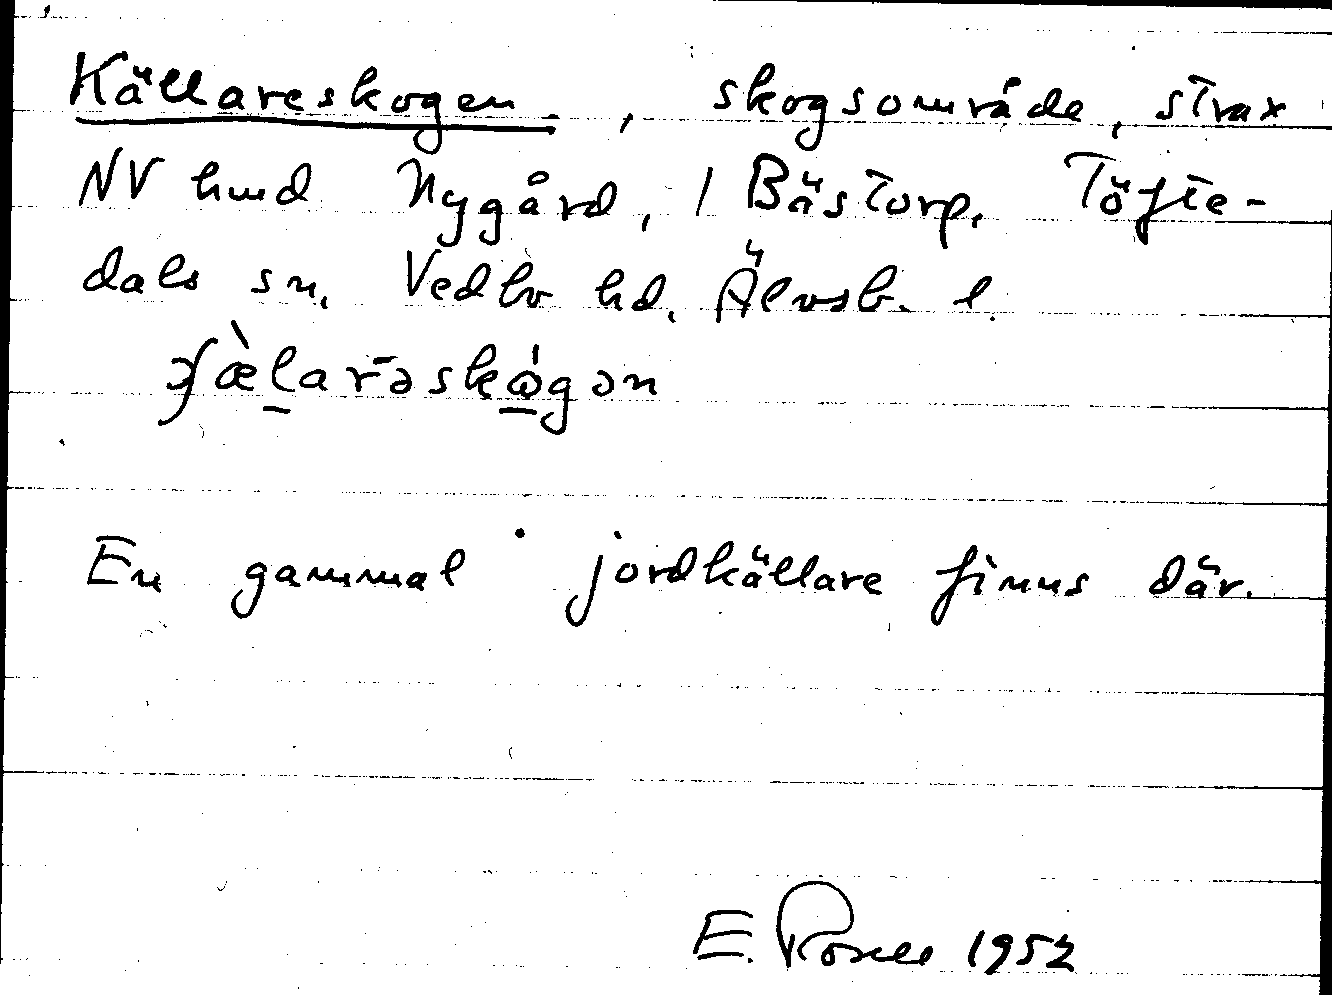 Källareskogen, skogsområde, strax
NV hmd Nygård, 1 Bästorp, Töfte-
dals sn, Vedbo hd, Älvsb. l.
En gammal jordkällare finns där.
E. 1952